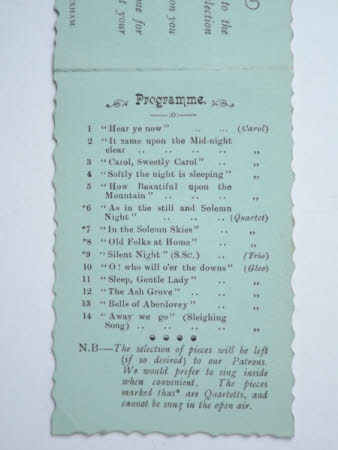 EXHAM.
to the
lection
on you
me for
t your
Programme.
1 "Hear ye now" ... ... (Carol)
2 "It came upon the Mid-night
clear .. .. .. .. „
3 "Carol, Sweetly Carol" .. .. „
4 "Softly the night is sleeping" .. „
5 "How Beautiful upon the
Mountain" .. .. .. .. „
*6 "As in the still and Solemn
Night" .. .. .. .. (Quartet)
*7 "In the Solemn Skies" .. .. „
*8 "Old Folks at Home" .. .. „
*9 "Silent Night" (S.Sc.) .. (Trio)
10 "O! who will o'er the downs" (Glee)
11 "Sleep, Gentle Lady" .. .. „
12 "The Ash Grove" .. .. „
13 "Bells of Aberdovey" .. .. „
14 "Away we go" (Sleighing
Song) .. .. .. .. „
N.B—The selection of pieces will be left
(if so desired) to our Patrons.
We would prefer to sing inside
when convenient. The pieces
marked thus* are Quartetts, and
cannot be sung in the open air.